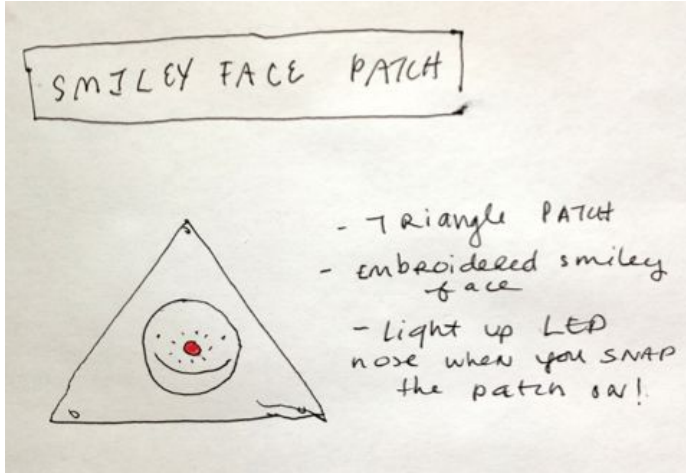 SMILEY FACE PATCH
- TRIANGLE PATCH
- EMBROIDERED SMILEY
face
- Light up LED
nose when you SNAP
the patch on!